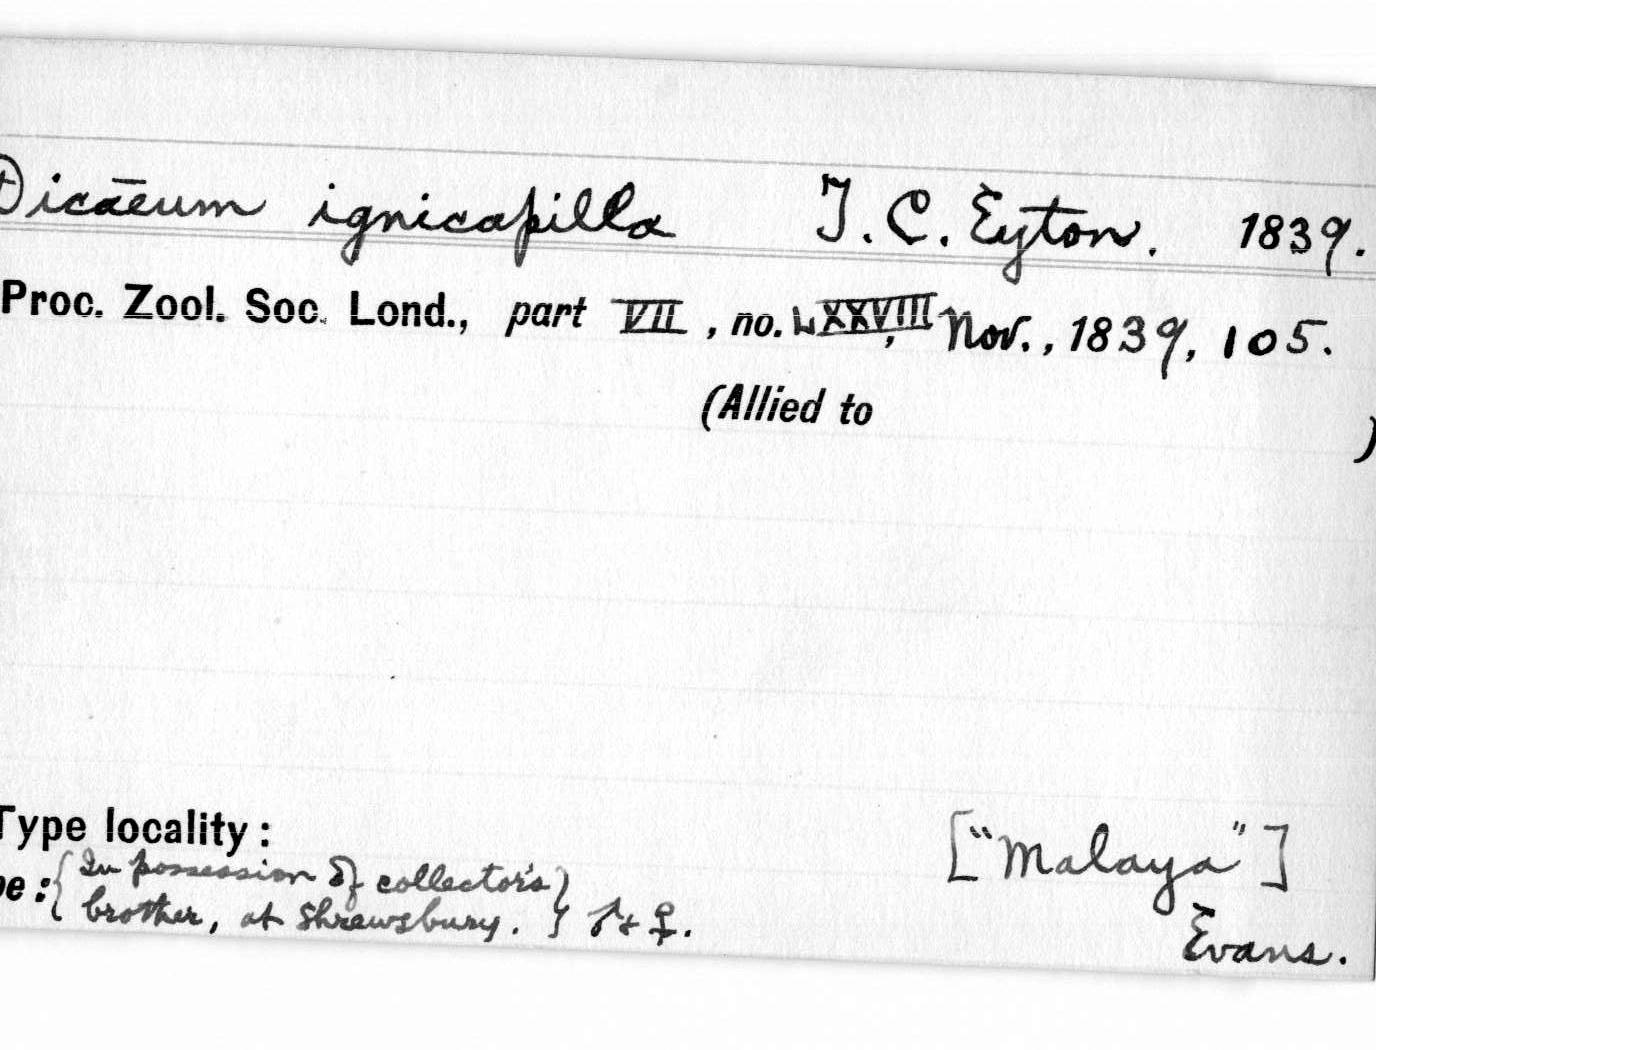 Dicaeum ignicapilla T. C. Eyton. 1839.
Proc. Zool. Soc. Lond., part VII, no. LXXXVIII, Nov., 1839, 105.
(Allied to )
Type locality: ["Malaya"]
pe: {In possession of collector's
brother, at Shrewsbury.} ♂ + ♀. Evans.